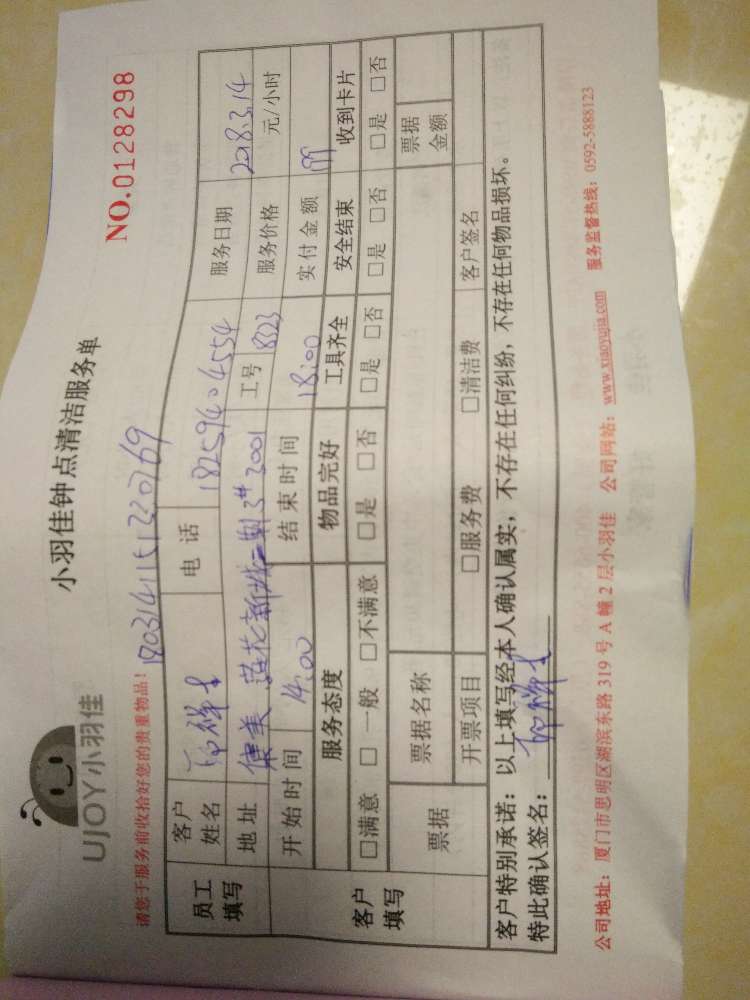 UJOY小羽佳
小羽佳钟点清洁服务单
NO.0128298
请您于服务前收拾好您的贵重物品!
1803141151220769
员工填写
客户姓名
电话 18259404554
服务日期 2018.3.14
地址 莲花新城二期 3# 3001
工号 1823
服务价格 元/小时
开始时间 14:00
结束时间 18:00
实付金额
客户填写
服务态度 物品完好 工具齐全 安全结束 收到卡片
□满意 □一般 □不满意 □是 □否 □是 □否 □是 □否 □是 □否
票据
票据名称
票据金额
开票项目 □服务费 □清洁费 客户签名
客户特别承诺:以上填写经本人确认属实,不存在任何纠纷,不存在任何物品损坏。
特此确认签名:
公司地址:厦门市思明区湖滨东路319号A幢2层小羽佳 公司网站:www.xiaoyujia.com 服务监督热线:0592-5888123